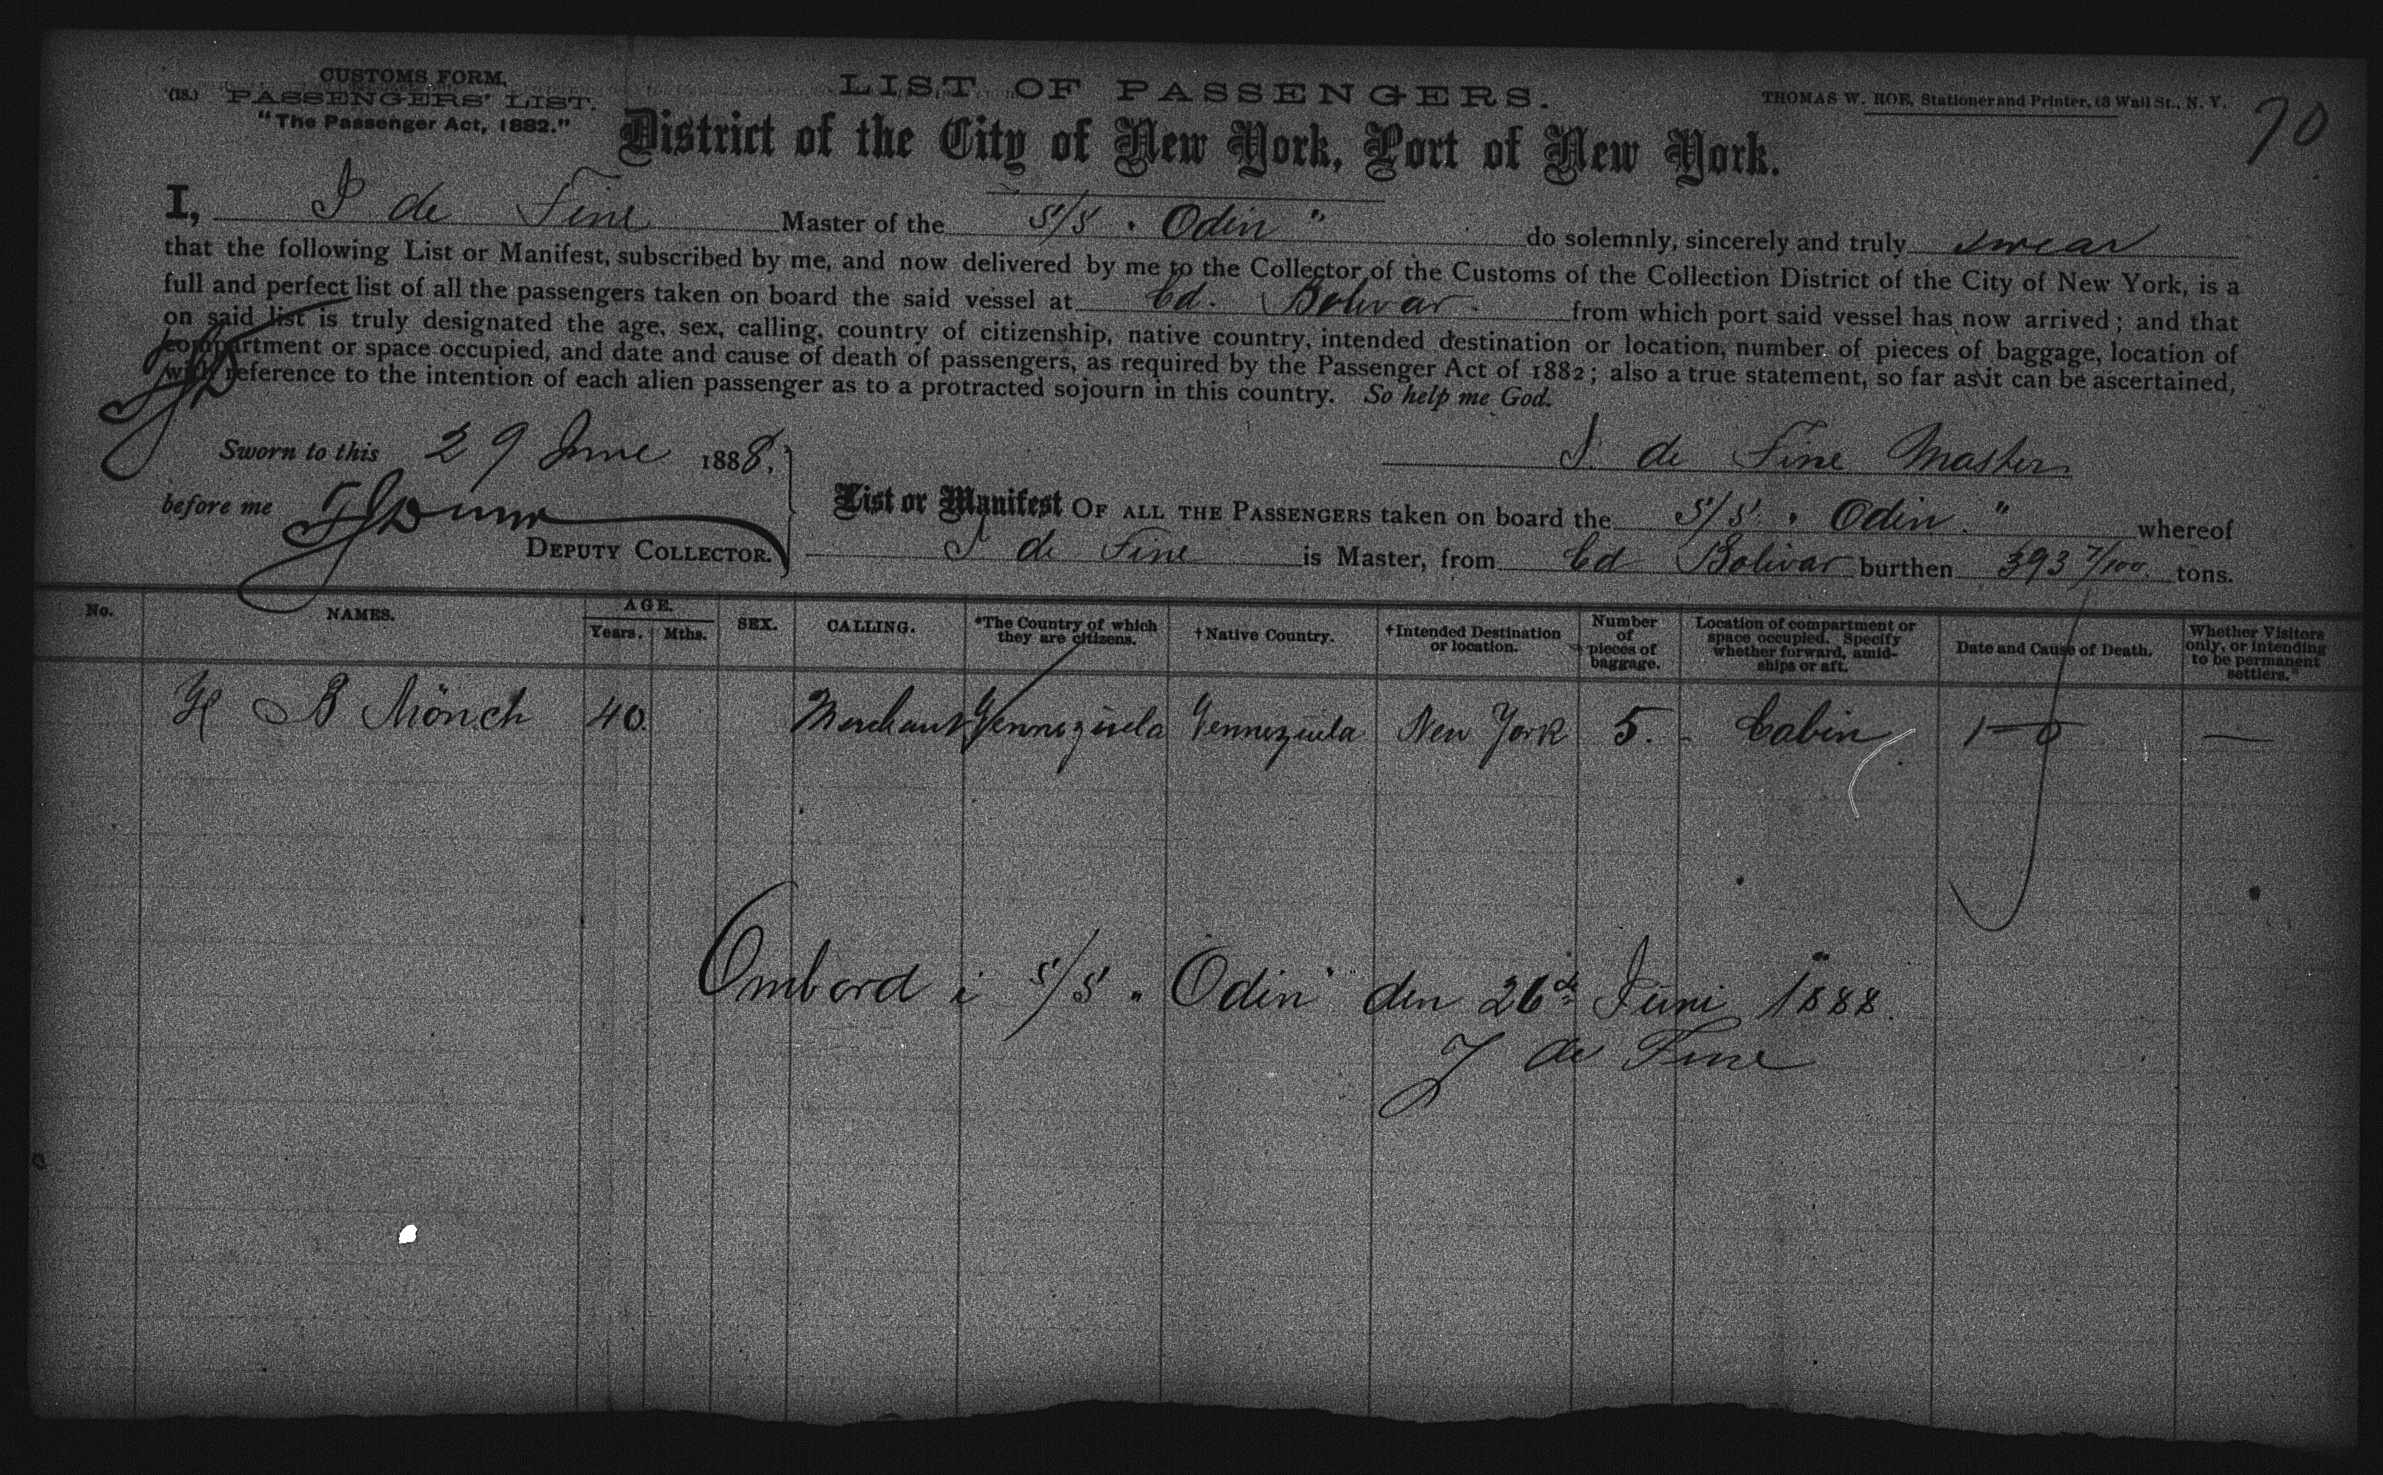 CUSTOMS FORM.
(18.) PASSENGERS' LIST.
"The Passenger Act, 1882."
LIST OF PASSENGERS.
THOMAS W. ROE, Stationer and Printer, 18 Wall St., N. Y.
70
District of the City of New York, Port of New York.
I, J de Fine Master of the S/S "Odin" do solemnly, sincerely and truly swear
that the following List or Manifest, subscribed by me, and now delivered by me to the Collector of the Customs of the Collection District of the City of New York, is a
full and perfect list of all the passengers taken on board the said vessel at Cd. Bolivar. from which port said vessel has now arrived; and that
on said list is truly designated the age, sex, calling, country of citizenship, native country, intended destination or location, number of pieces of baggage, location of
compartment or space occupied, and date and cause of death of passengers, as required by the Passenger Act of 1882; also a true statement, so far as it can be ascertained,
with reference to the intention of each alien passenger as to a protracted sojourn in this country. So help me God.
Sworn to this 29 June 1888,
J. de Fine Master
before me
DEPUTY COLLECTOR.
List or Manifest OF ALL THE PASSENGERS taken on board the S/S "Odin" whereof
J de Fine is Master, from Cd Bolivar burthen 393 7/100 tons.
No. NAMES. AGE. Years. Mths. SEX. CALLING. *The Country of which they are citizens. †Native Country. †Intended Destination or location. Number of pieces of baggage. Location of compartment or space occupied. Specify whether forward, amidships or aft. Date and Cause of Death. Whether Visitors only, or intending to be permanent settlers."
H B Mönch 40. Merchant Vennezuela Vennezuela New York 5. - Cabin 1—0 —
Ombord i S/S "Odin" den 26de Juni 1888.
J de Fine